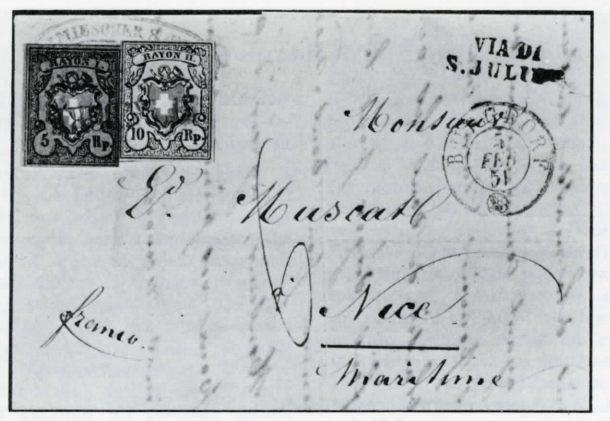 MIESCHER &
RAYON I.
5 Rp.
RAYON II.
10 Rp.
VIA DI
S. JULI
BURGDORF
FEB
51
Monsieur
Ed. Muscat
à Nice
Maritime
franco.